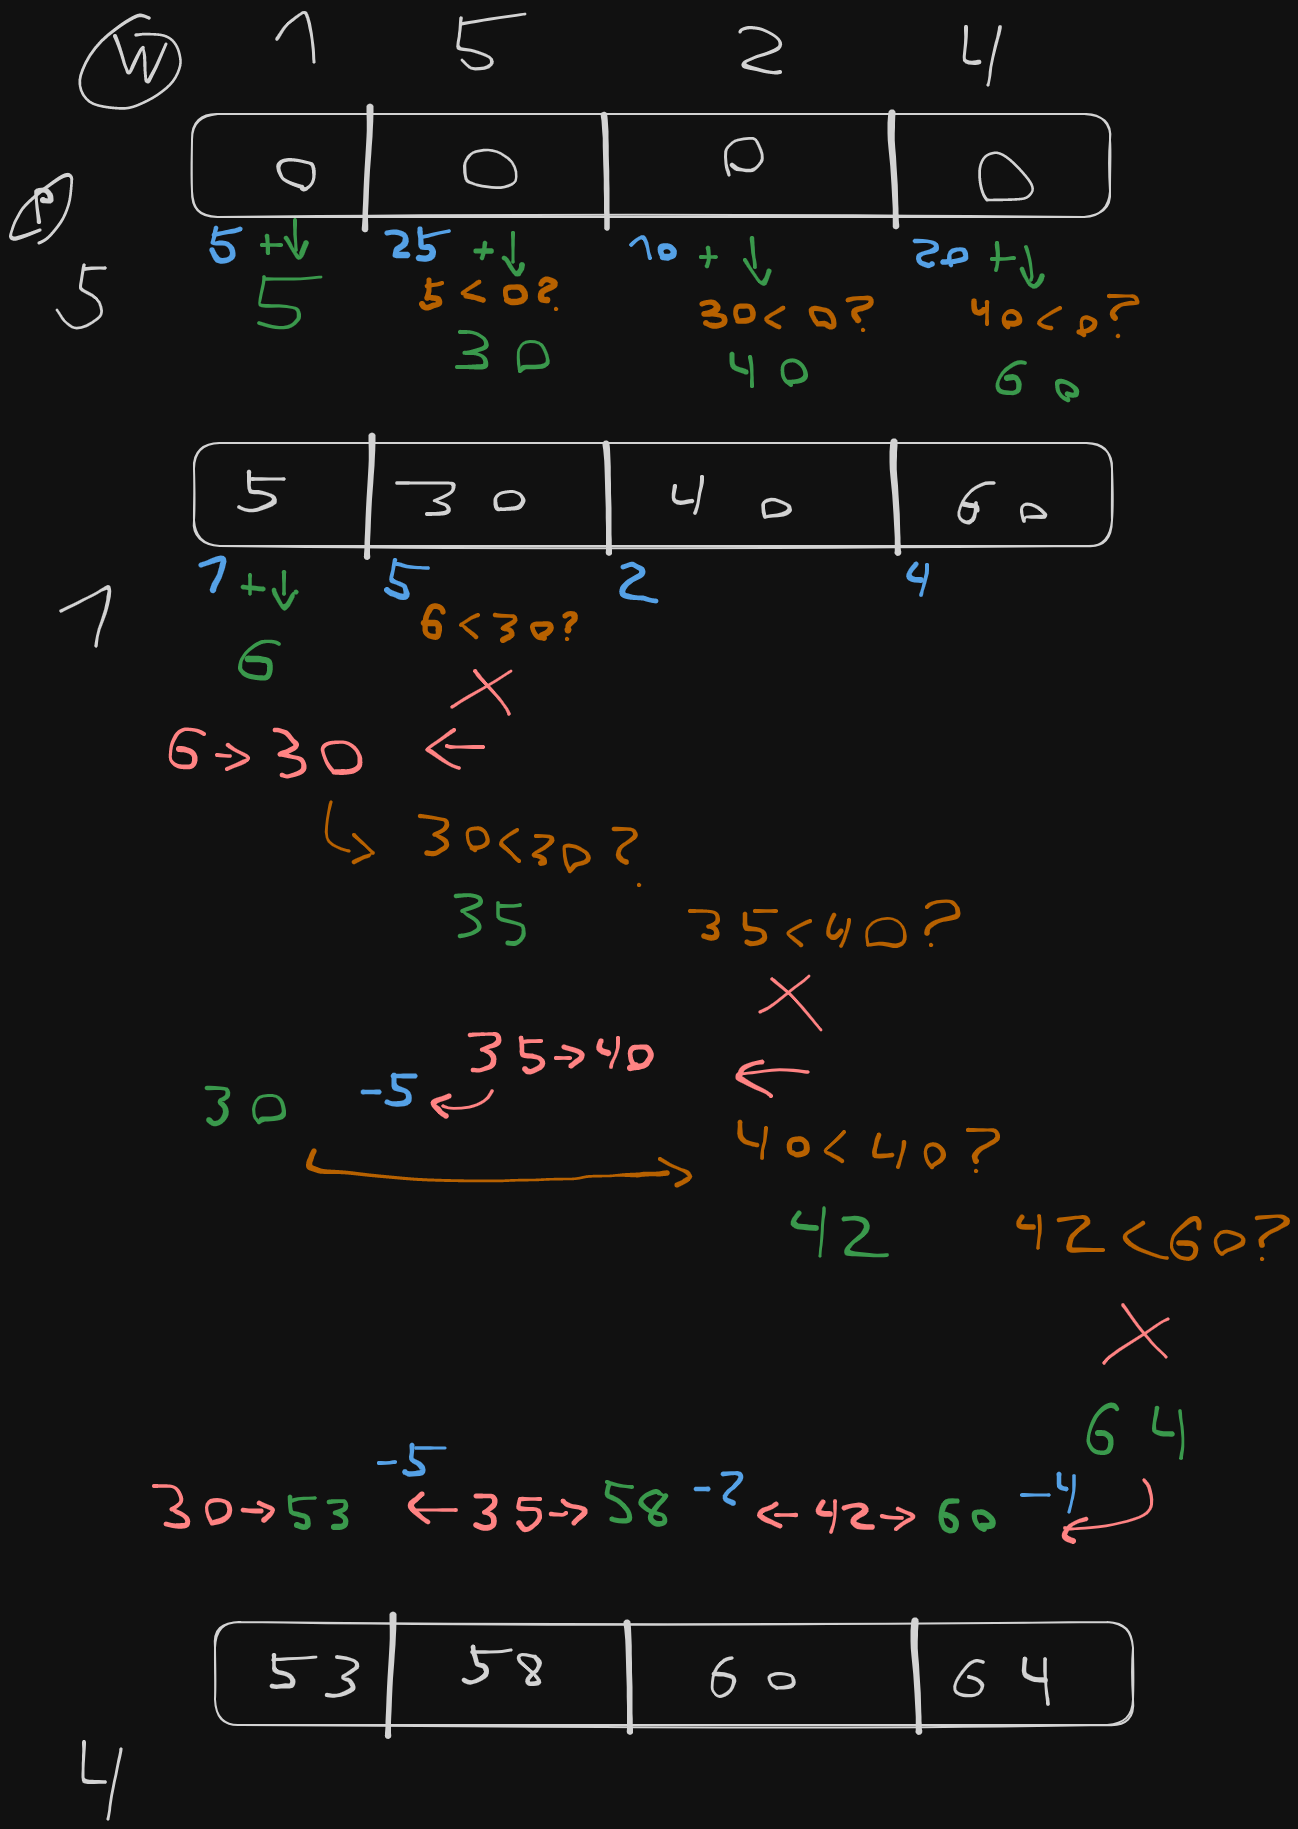 W 1 5 2 4
0 0 0 0
P
5 + ↓ 25 + ↓ 10 + ↓ 20 + ↓
5 5 5 < 0? 30 < 0? 40 < 0?
30 40 60
5 30 40 60
1 + ↓ 5 2 4
1 6 < 30?
6
6 → 30 ←
30 < 30?
35 35 < 40?
35 → 40
30 -5 ← ←
40 < 40?
42 42 < 60?
64
30 → 53 -5 ← 35 → 58 -2 ← 42 → 60 -4
53 58 60 64
4